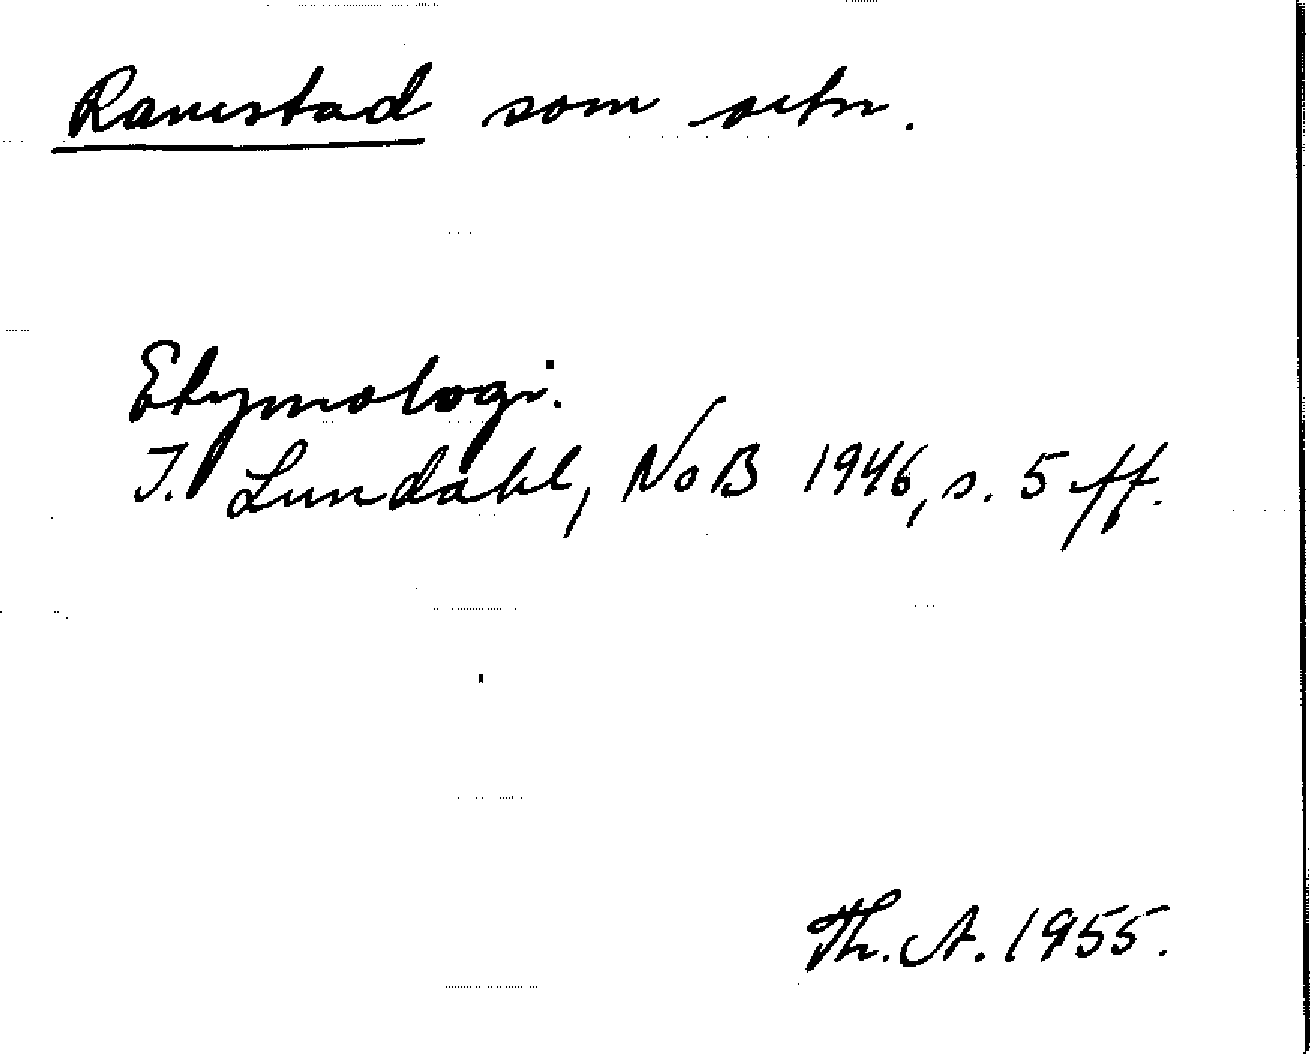 Ranstad som ortn.
Etymologi.
I. Lundahl, NoB 1946, s. 5 ff.
Th. A. 1955.